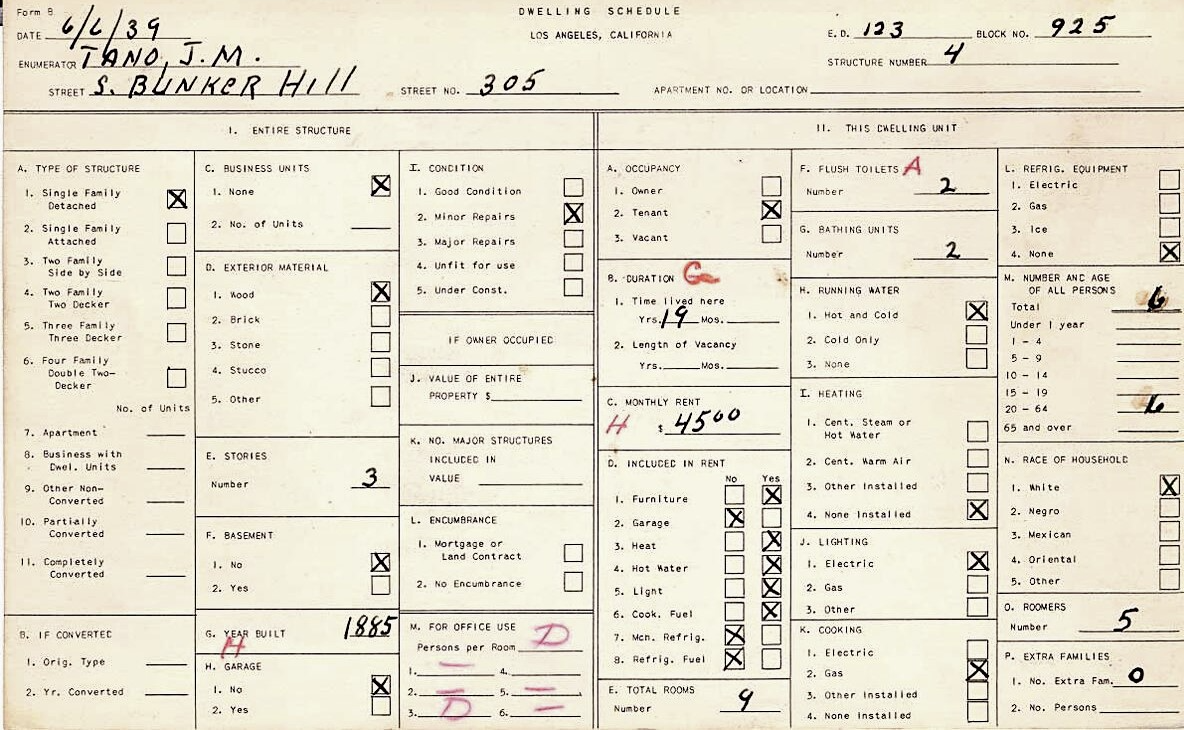 Form B
DWELLING SCHEDULE
LOS ANGELES, CALIFORNIA
DATE 6/6/39
E.D. 123 BLOCK NO. 925
ENUMERATOR TANO, J.M.
STRUCTURE NUMBER 4
STREET S. BUNKER HILL STREET NO. 305 APARTMENT NO. OR LOCATION
I. ENTIRE STRUCTURE
A. TYPE OF STRUCTURE
1. Single Family
Detached X
2. Single Family
Attached
3. Two Family
Side by Side
4. Two Family
Two Decker
5. Three Family
Three Decker
6. Four Family
Double Two-
Decker
No. of Units
7. Apartment
8. Business with
Dwel. Units
9. Other Non-
Converted
10. Partially
Converted
11. Completely
Converted
B. IF CONVERTED
1. Orig. Type
2. Yr. Converted
C. BUSINESS UNITS
1. None X
2. No. of Units
D. EXTERIOR MATERIAL
1. Wood X
2. Brick
3. Stone
4. Stucco
5. Other
E. STORIES
Number 3
F. BASEMENT
1. No X
2. Yes
G. YEAR BUILT 1885
H
H. GARAGE
1. No X
2. Yes
I. CONDITION
1. Good Condition
2. Minor Repairs X
3. Major Repairs
4. Unfit for use
5. Under Const.
IF OWNER OCCUPIED
J. VALUE OF ENTIRE
PROPERTY $
K. NO. MAJOR STRUCTURES
INCLUDED IN
VALUE
L. ENCUMBRANCE
1. Mortgage or
Land Contract
2. No Encumbrance
M. FOR OFFICE USE
Persons per Room D
1. — 4.
2. — 5. —
3. D 6. —
II. THIS DWELLING UNIT
A. OCCUPANCY
1. Owner
2. Tenant X
3. Vacant
B. DURATION G
1. Time lived here
Yrs. 19 Mos.
2. Length of Vacancy
Yrs. Mos.
C. MONTHLY RENT
H $ 45 00
D. INCLUDED IN RENT
No Yes
1. Furniture X
2. Garage X
3. Heat X
4. Hot Water X
5. Light X
6. Cook. Fuel X
7. Mcn. Refrig. X
8. Refrig. Fuel X
E. TOTAL ROOMS
Number 9
F. FLUSH TOILETS A
Number 2
G. BATHING UNITS
Number 2
H. RUNNING WATER
1. Hot and Cold X
2. Cold Only
3. None
I. HEATING
1. Cent. Steam or
Hot Water
2. Cent. Warm Air
3. Other Installed
4. None Installed X
J. LIGHTING
1. Electric X
2. Gas
3. Other
K. COOKING
1. Electric
2. Gas X
3. Other Installed
4. None Installed
L. REFRIG. EQUIPMENT
1. Electric
2. Gas
3. Ice
4. None X
M. NUMBER AND AGE
OF ALL PERSONS
Total 6
Under 1 year
1 - 4
5 - 9
10 - 14
15 - 19
20 - 64 6
65 and over
N. RACE OF HOUSEHOLD
1. White X
2. Negro
3. Mexican
4. Oriental
5. Other
O. ROOMERS
Number 5
P. EXTRA FAMILIES
1. No. Extra Fam. 0
2. No. Persons